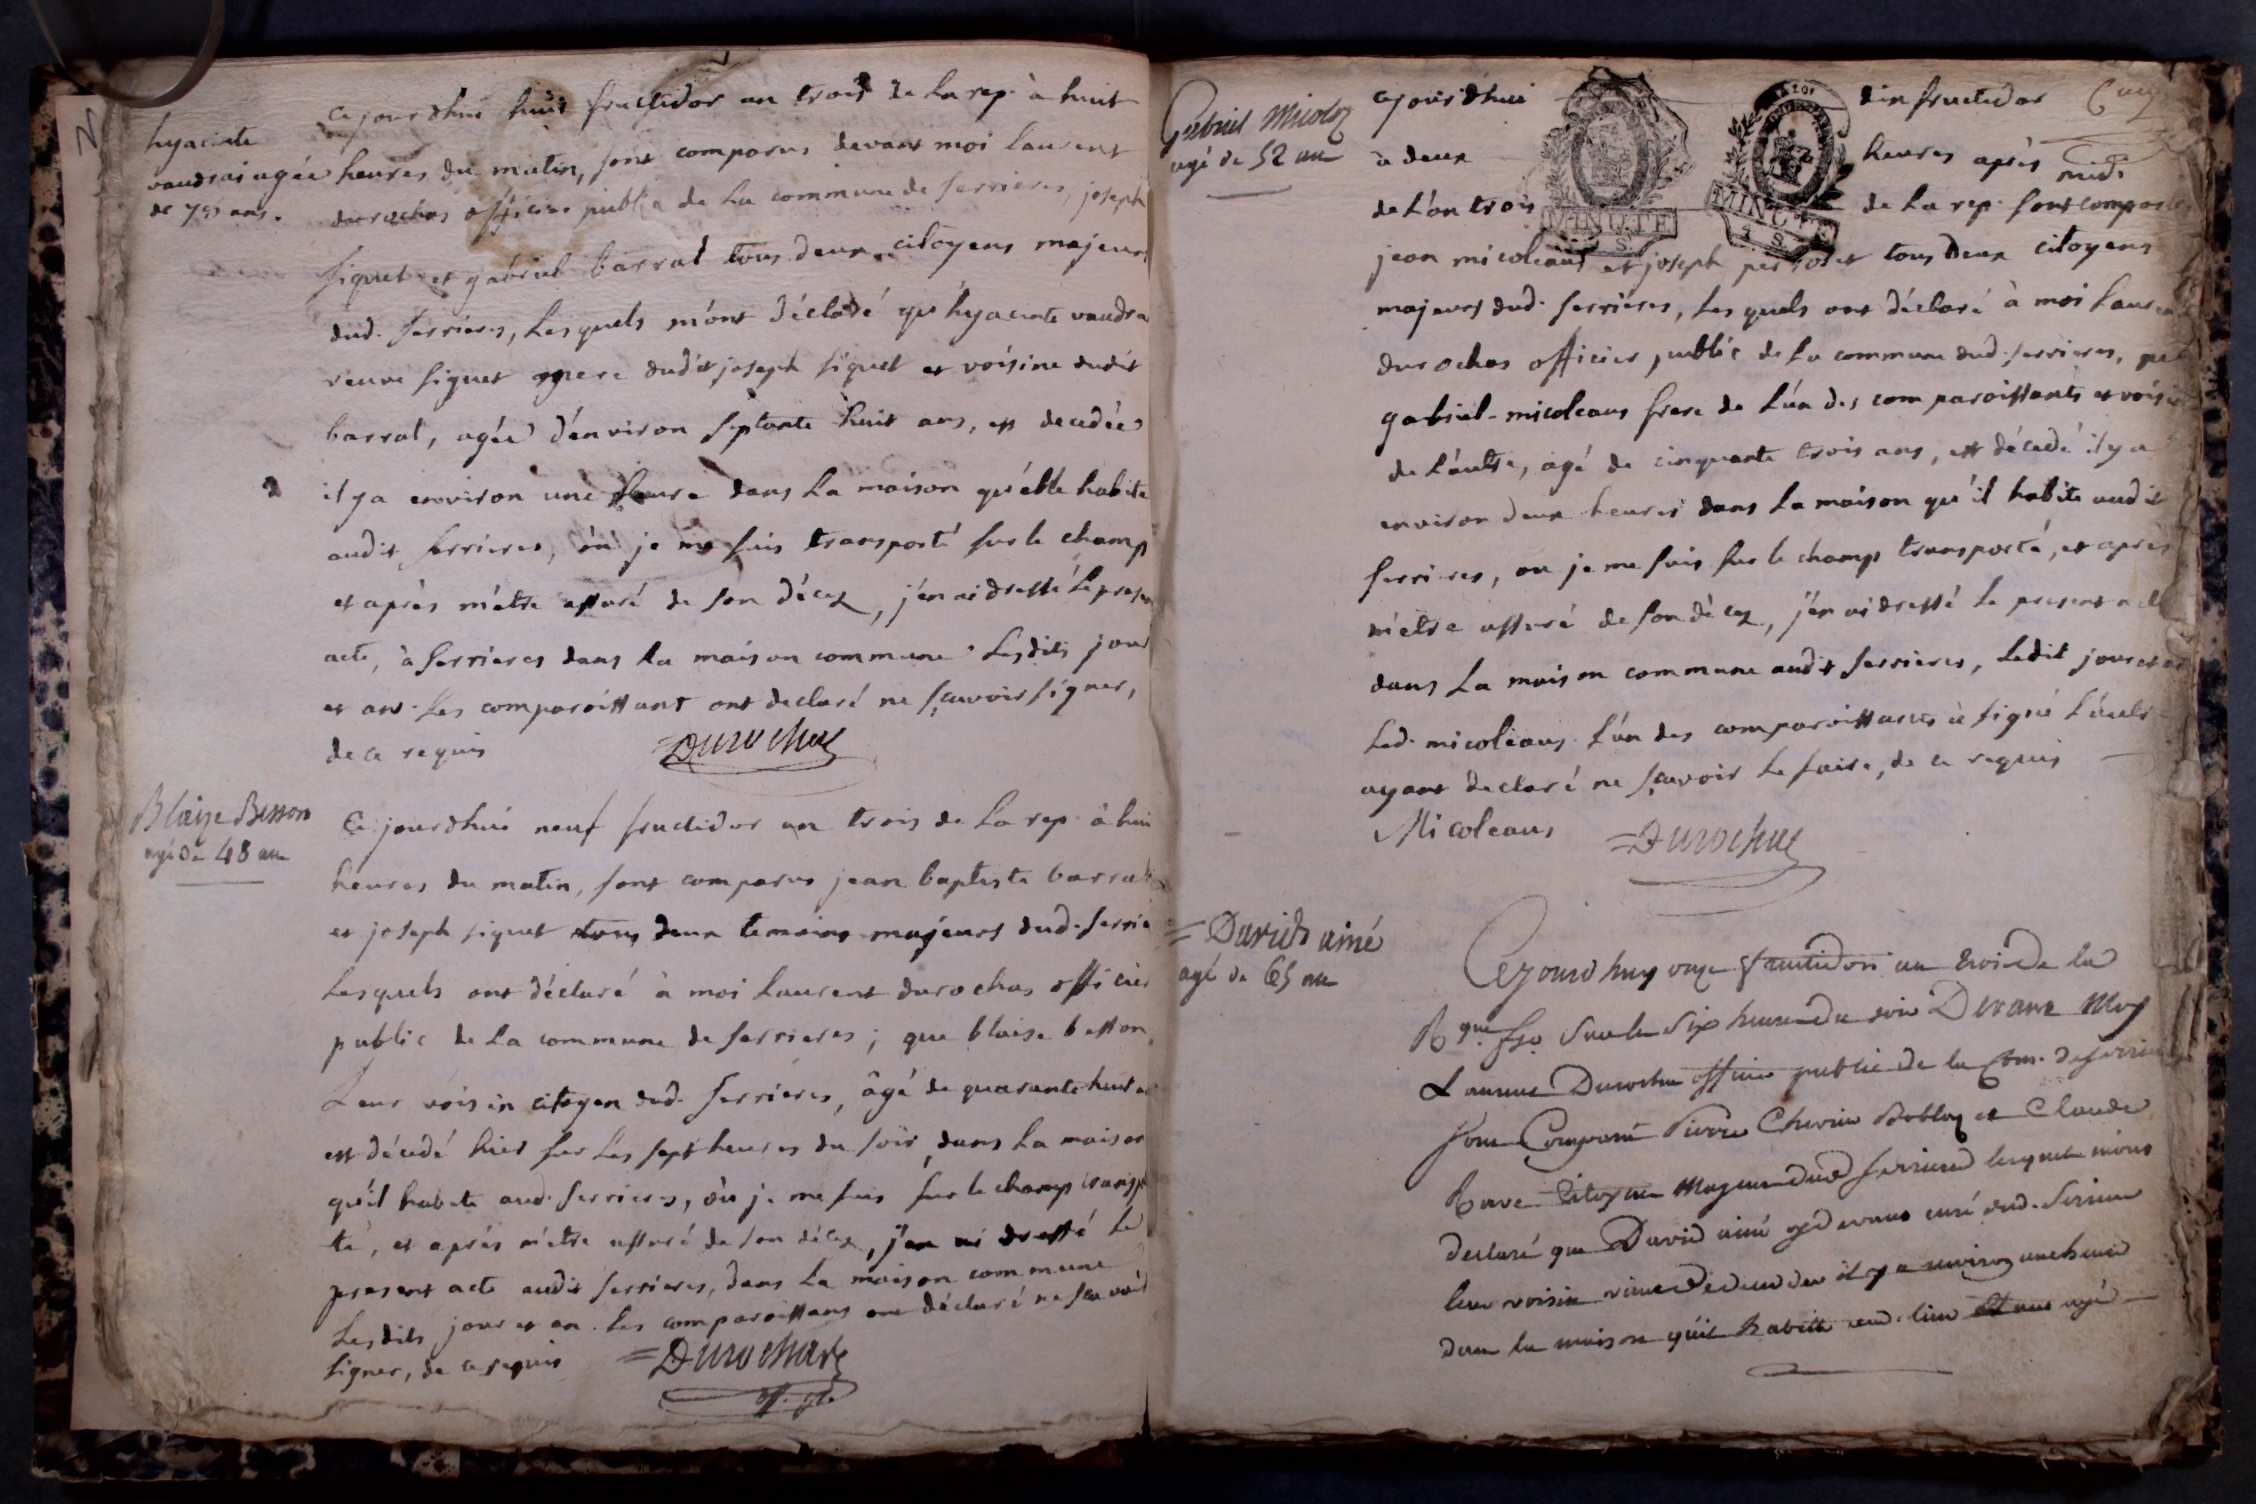 hyacinte
vaudrai agée
de 78 ans.
Ce jourdhui huit fructidor an trois de la rep. à huit
heures du matin, sont comparus devant moi laurent
durochas officier public de la commune de serrieres, joseph
siquet et gabriel barral tous deux citoyens majeurs
dud. serrieres, lesquels m'ont déclaré qu'hyacinte vaudra
veuve siquet mere dudit joseph siquet et voisine dudit
barral, agée d'environ septante huit ans, est decedée
il y a environ une heure dans la maison qu'elle habite
audit serrieres, où je me suis transporté sur le champ
et après m'etre assuré de son décez, j'en ai dressé le presen
acte, à serrieres dans la maison commune lesdits jour
et an. les comparoissant ont declaré ne sçavoir signer,
de ce requis
Durochas
Blaize Besson
agé de 48 an
Ce jourdhui neuf fructidor an trois de la rep. à hui
heures du matin, sont comparus jean baptiste barral
et joseph siquet tous deux temoins majeurs dud. serrie
lesquels ont déclaré à moi laurent durochas officier
public de la commune de serrieres; que blaise besson
leur voisin citoyen dud. serrieres, âgé de quarante huit a
est décedé hier sur les sept heures du soir, dans la maison
qu'il habite aud. serrieres, où je me suis sur le champ transp
té, et après m'etre assuré de son décez, j'en ai dressé le
present acte audit serrieres, dans la maison commune
lesdits jour et an. les comparoissans ont déclaré ne sçavoir
signer, de ce requis
Durochas
off. p.
Gabriel Micolo
agé de 52 an
cejourd'hui dix fructidor
à deux heures après midi
de l'an trois de la rep. sont comparus
MINUTE
MINUTE
jean micoleaus et joseph tous deux citoyens
majeurs dud. serrieres, les quels ont déclaré à moi lauren
durochas officier public de la commune dud. serrieres, que
gabriel micoleaus frere de l'un des comparoissants et voisin
de l'autre, agé de cinquante trois ans, est décedé il y a
environ deux heures dans la maison qu'il habite audit
serrieres, ou je me suis sur le champ transporté, et après
m'etre assuré de son décez, j'en ai dressé le present acte
dans la maison commune audit serrieres, ledit jour et an
led. micoleaus l'un des comparoissants à signé l'autre
ayant declaré ne sçavoir le faire, de ce requis
Micoleaus
Durochas
David ainé
agé de 65 an
Cejourdhuy onze fructidor an trois de la
Rque sur les six heures du soir Devant Moy
Laurent Durochas officier public de la Com. de serrieres
sont Comparu Pierre et Claude
Citoyens Majeurs dud serrieres lesquels mont
declaré que David ainé cydevant curé dud. serrieres
leur voisin vient de deceder il y a environ une heure
dans la maison qu'il habitte aud. lieu agé